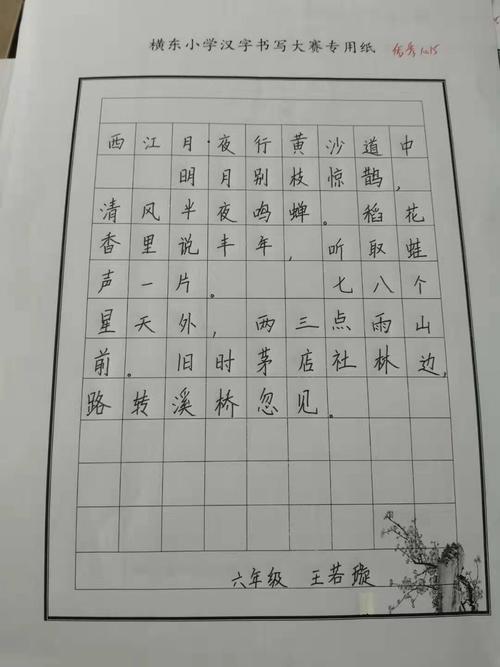 横东小学汉字书写大赛专用纸 优秀
西江月·夜行黄沙道中
明月别枝惊鹊，
清风半夜鸣蝉。稻花
香里说丰年，听取蛙
声一片。七八个
星天外，两三点雨山
前。旧时茅店社林边，
路转溪桥忽见。
六年级 王若璇